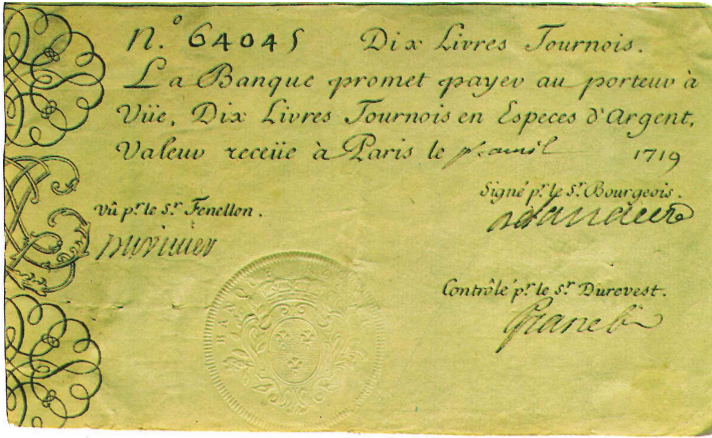 N.º 64045 Dix Livres Tournois.
La Banque promet payer au porteur à
Vüe, Dix Livres Tournois en Especes d'Argent,
Valeur receüe à Paris le pr. avril 1719
Vû p.r le S.r Fenellon.
Signé p.r le S.r Bourgeois.
Contrôlé p.r le S.r Durevest.
Granet
BANQ